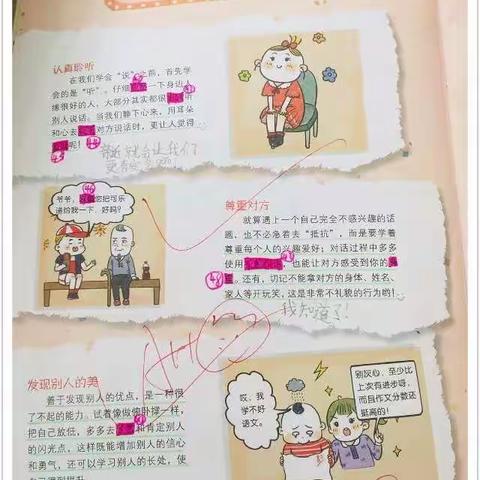 认真聆听
在我们学会“说”之前，首先学
会的是“听”。仔细一下身边人
缘很好的人，大部分其实都很
听别人说话。当我们静下心来，用耳朵
和心去对方说话时，更让人觉得
呢！
就会让我们
爷爷，您把可乐
递给我一下，好吗？
尊重对方
就算遇上一个自己完全不感兴趣的话
题，也不必急着去“抵抗”，而是要学着
尊重每个人的兴趣爱好；对话过程中多多
使用，也能让对方感受到你的
。还有，切记不能拿对方的身体、姓名、
家人等开玩笑，这是非常不礼貌的行为哟！
我知道了！
发现别人的美
善于发现别人的优点，是一种很
了不起的能力。试着像做俯卧撑一样，
把自己放低，多多去和肯定别人
的闪光点，这样既能增加别人的信心
和勇气，还可以学习别人的长处，使
自己得到提升
哎，我
学不好
语文。
别灰心，至少比
上次有进步呀，
而且作文分数还
挺高的！